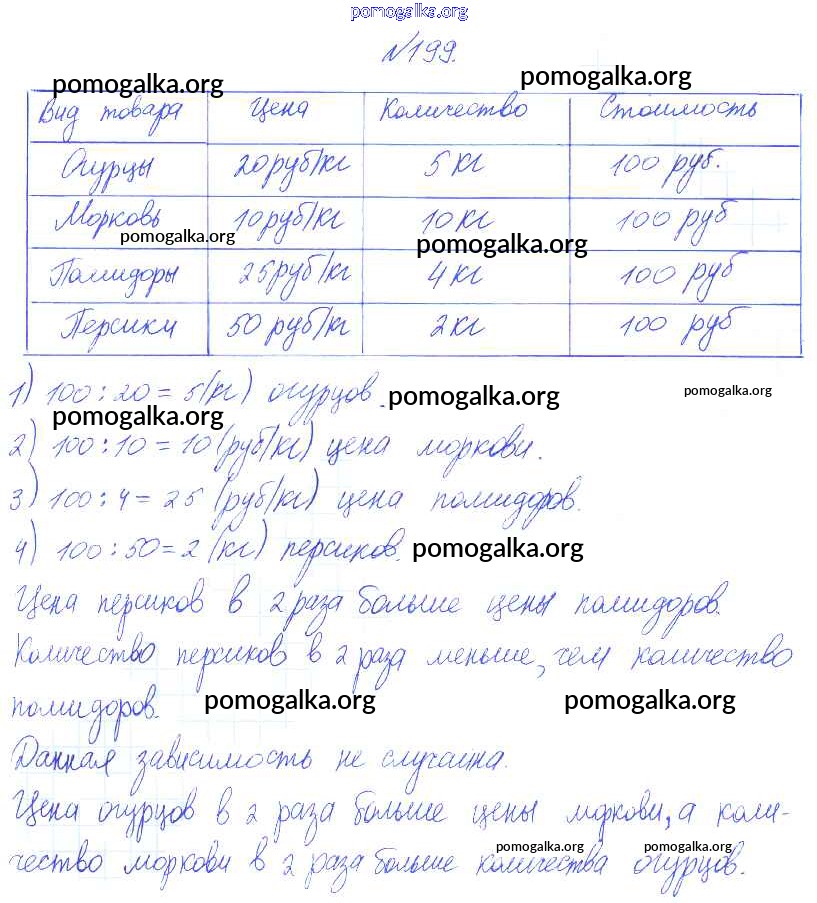 pomogalka.org
№199.
pomogalka.org pomogalka.org
Вид товара Цена Количество Стоимость
Огурцы 20 руб/кг 5 кг 100 руб.
Морковь 10 руб/кг 10 кг 100 руб
pomogalka.org pomogalka.org
Помидоры 25 руб/кг 4 кг 100 руб
Персики 50 руб/кг 2 кг 100 руб
1) 100 : 20 = 5 (кг) огурцов.
pomogalka.org pomogalka.org
pomogalka.org
2) 100 : 10 = 10 (руб/кг) цена моркови.
3) 100 : 4 = 25 (руб/кг) цена помидоров.
4) 100 : 50 = 2 (кг) персиков. pomogalka.org
Цена персиков в 2 раза больше цены помидоров.
Количество персиков в 2 раза меньше, чем количество
помидоров. pomogalka.org pomogalka.org
Данная зависимость не случайна.
Цена огурцов в 2 раза больше цены моркови, а коли-
pomogalka.org pomogalka.org
чество моркови в 2 раза больше количества огурцов.